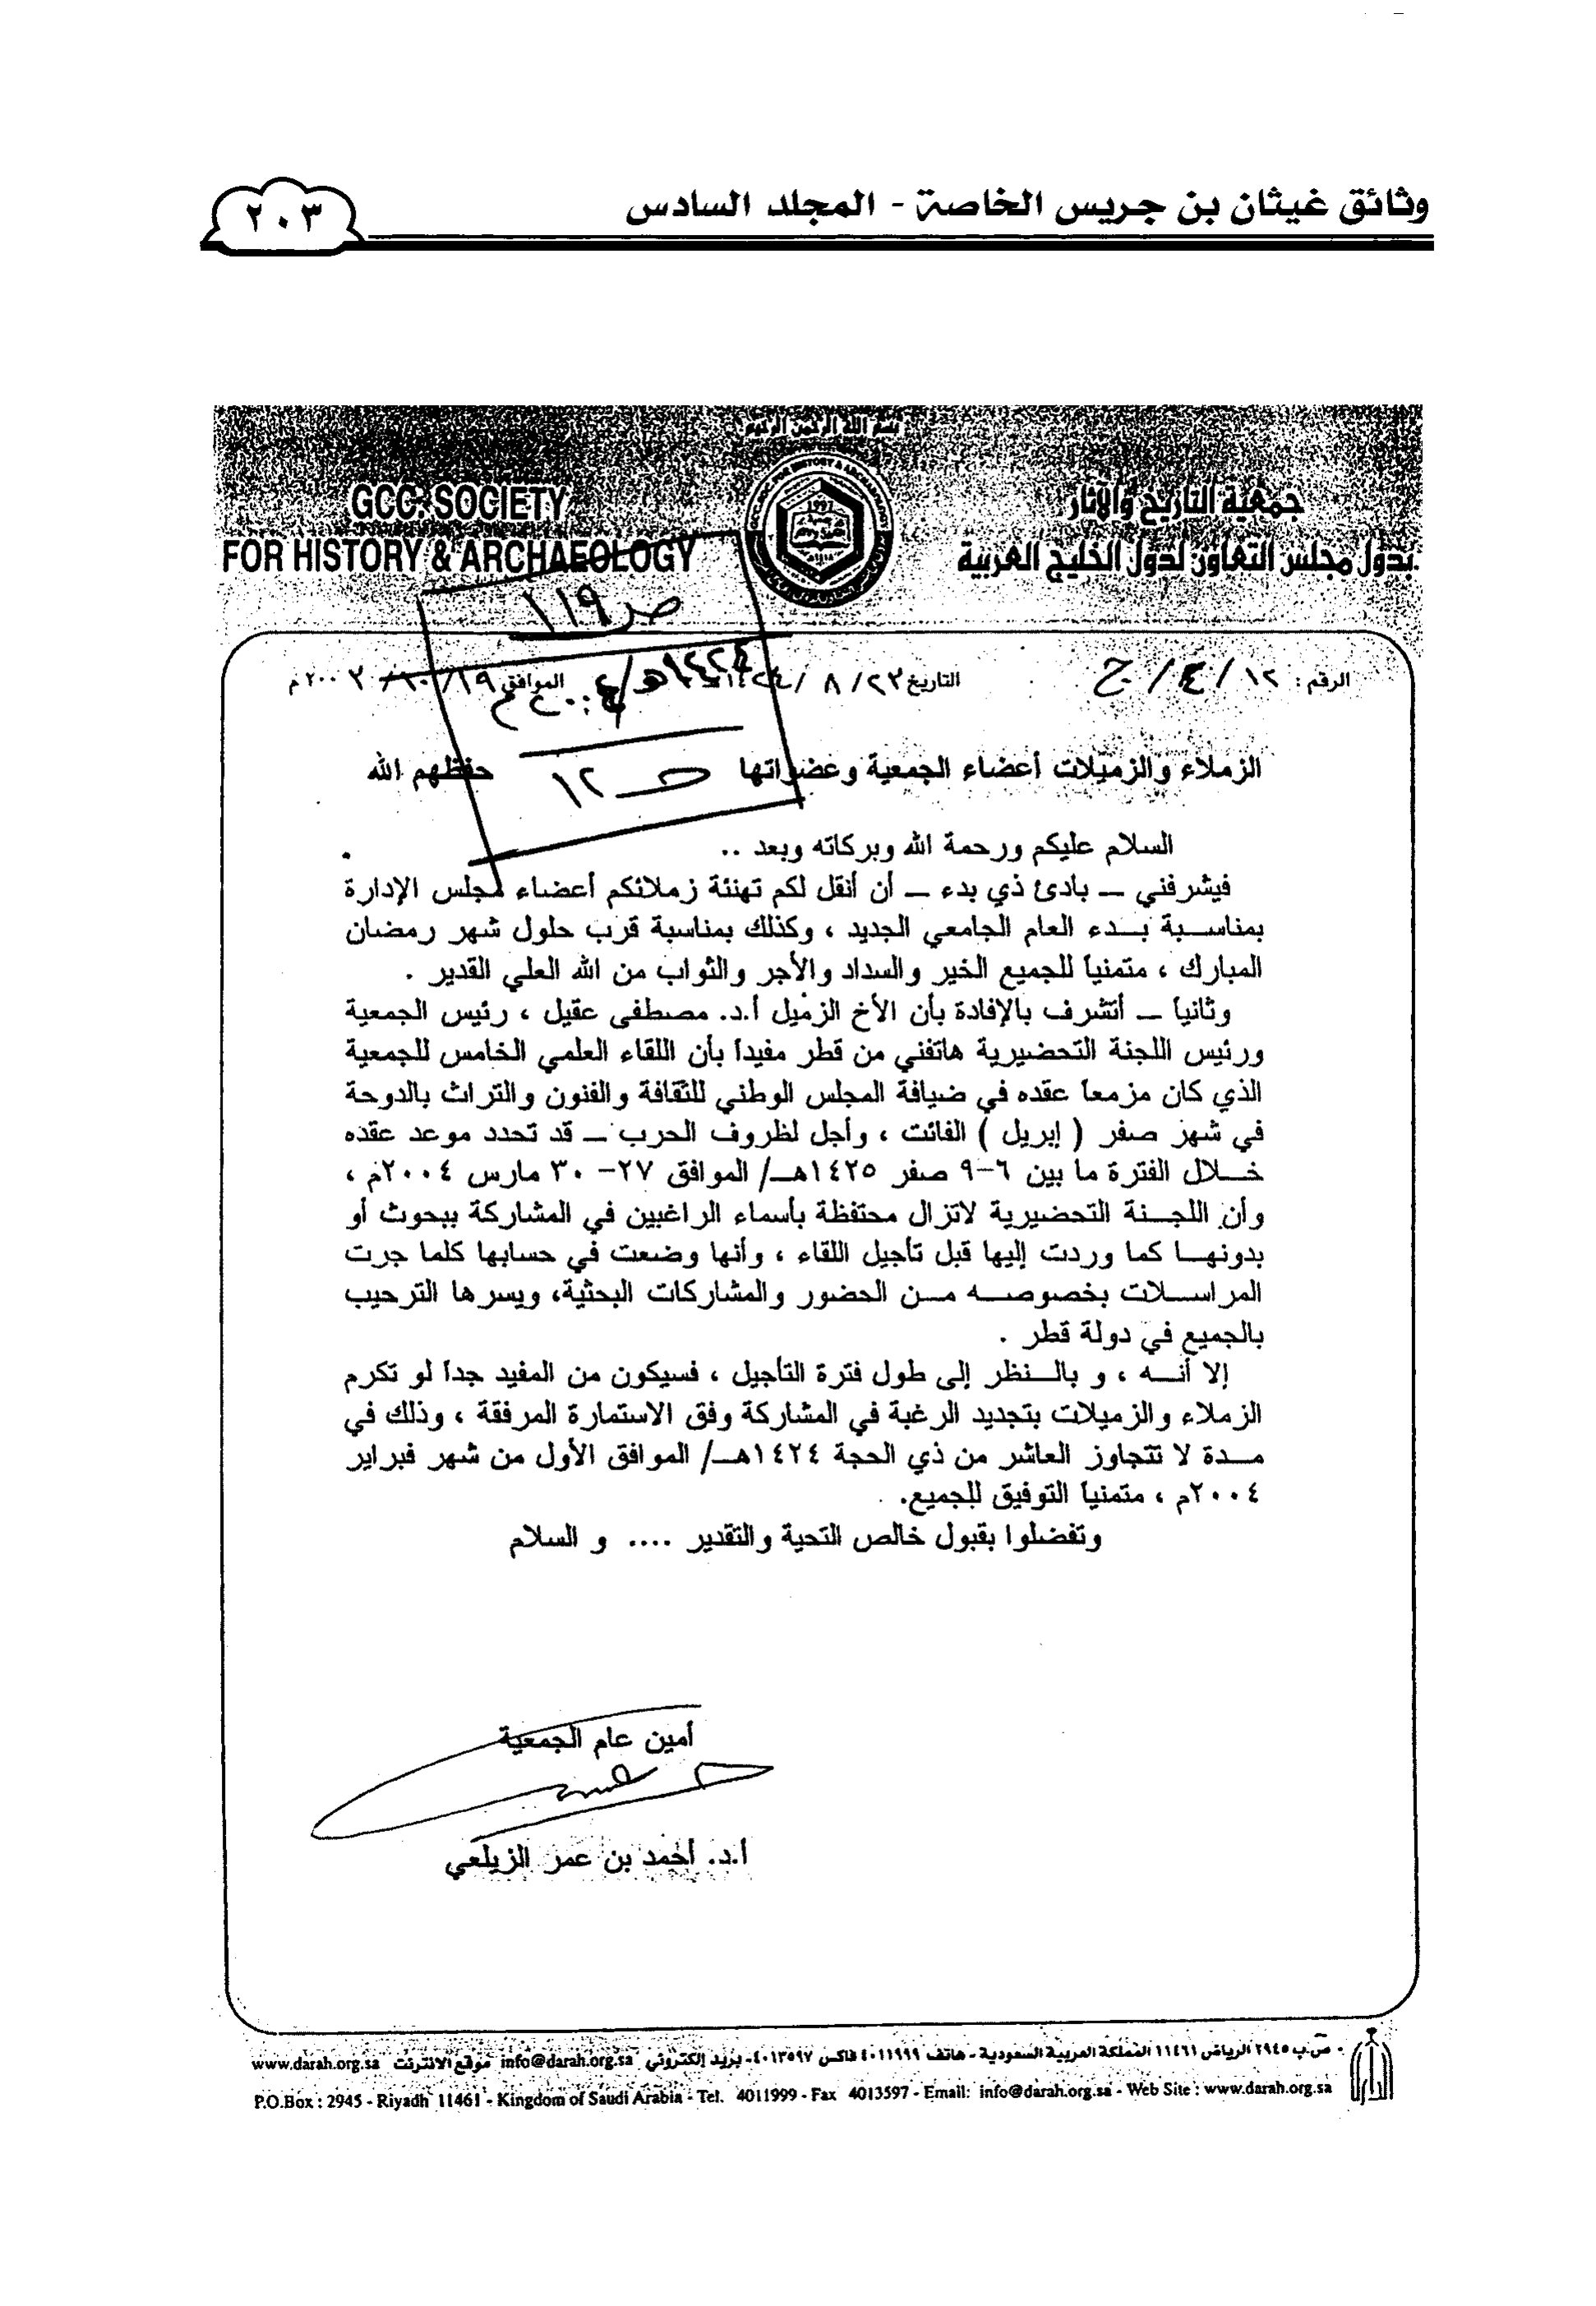 وثائق غيثان بن جريس الخاصة - المجلد السادس
٢٠٣
بسم الله الرحمن الرحيم
جمعية التاريخ والآثار
بدول مجلس التعاون لدول الخليج العربية
GCC. SOCIETY
FOR HISTORY & ARCHAEOLOGY
1997
ص ١١٩
الرقم : ١٢ / ٤ / ج
التاريخ ٢٣ / ٨ / ١٤٢٤هـ الموافق ١٩ / ١٠ / ٢٠٠٣م
١٤٢٤هـ/
ص ١٢
الزملاء والزميلات أعضاء الجمعية وعضواتها حفظهم الله
السلام عليكم ورحمة الله وبركاته وبعد ..
فيشرفني – بادئ ذي بدء – أن أنقل لكم تهنئة زملائكم أعضاء مجلس الإدارة
بمناسبة بدء العام الجامعي الجديد ، وكذلك بمناسبة قرب حلول شهر رمضان
المبارك ، متمنياً للجميع الخير والسداد والأجر والثواب من الله العلي القدير .
وثانيا – أتشرف بالإفادة بأن الأخ الزميل أ.د. مصطفى عقيل ، رئيس الجمعية
ورئيس اللجنة التحضيرية هاتفني من قطر مفيداً بأن اللقاء العلمي الخامس للجمعية
الذي كان مزمعاً عقده في ضيافة المجلس الوطني للثقافة والفنون والتراث بالدوحة
في شهر صفر ( إبريل ) الفائت ، وأجل لظروف الحرب – قد تحدد موعد عقده
خلال الفترة ما بين ٦-٩ صفر ١٤٢٥هـ/ الموافق ٢٧- ٣٠ مارس ٢٠٠٤م ،
وأن اللجنة التحضيرية لاتزال محتفظة بأسماء الراغبين في المشاركة ببحوث أو
بدونها كما وردت إليها قبل تأجيل اللقاء ، وأنها وضعت في حسابها كلما جرت
المراسلات بخصوصه من الحضور والمشاركات البحثية، ويسرها الترحيب
بالجميع في دولة قطر .
إلا أنه ، و بالنظر إلى طول فترة التأجيل ، فسيكون من المفيد جداً لو تكرم
الزملاء والزميلات بتجديد الرغبة في المشاركة وفق الاستمارة المرفقة ، وذلك في
مدة لا تتجاوز العاشر من ذي الحجة ١٤٢٤هـ/ الموافق الأول من شهر فبراير
٢٠٠٤م ، متمنيا التوفيق للجميع.
وتفضلوا بقبول خالص التحية والتقدير .... و السلام
أمين عام الجمعية
أ.د. أحمد بن عمر الزيلعي
ص.ب ٢٩٤٥ الرياض ١١٤٦١ المملكة العربية السعودية - هاتف ٤٠١١٩٩٩ فاكس ٤٠١٣٥٩٧ - بريد إلكتروني info@darah.org.sa موقع الانترنت www.darah.org.sa
P.O.Box : 2945 - Riyadh 11461 - Kingdom of Saudi Arabia - Tel. 4011999 - Fax 4013597 - Email: info@darah.org.sa - Web Site : www.darah.org.sa